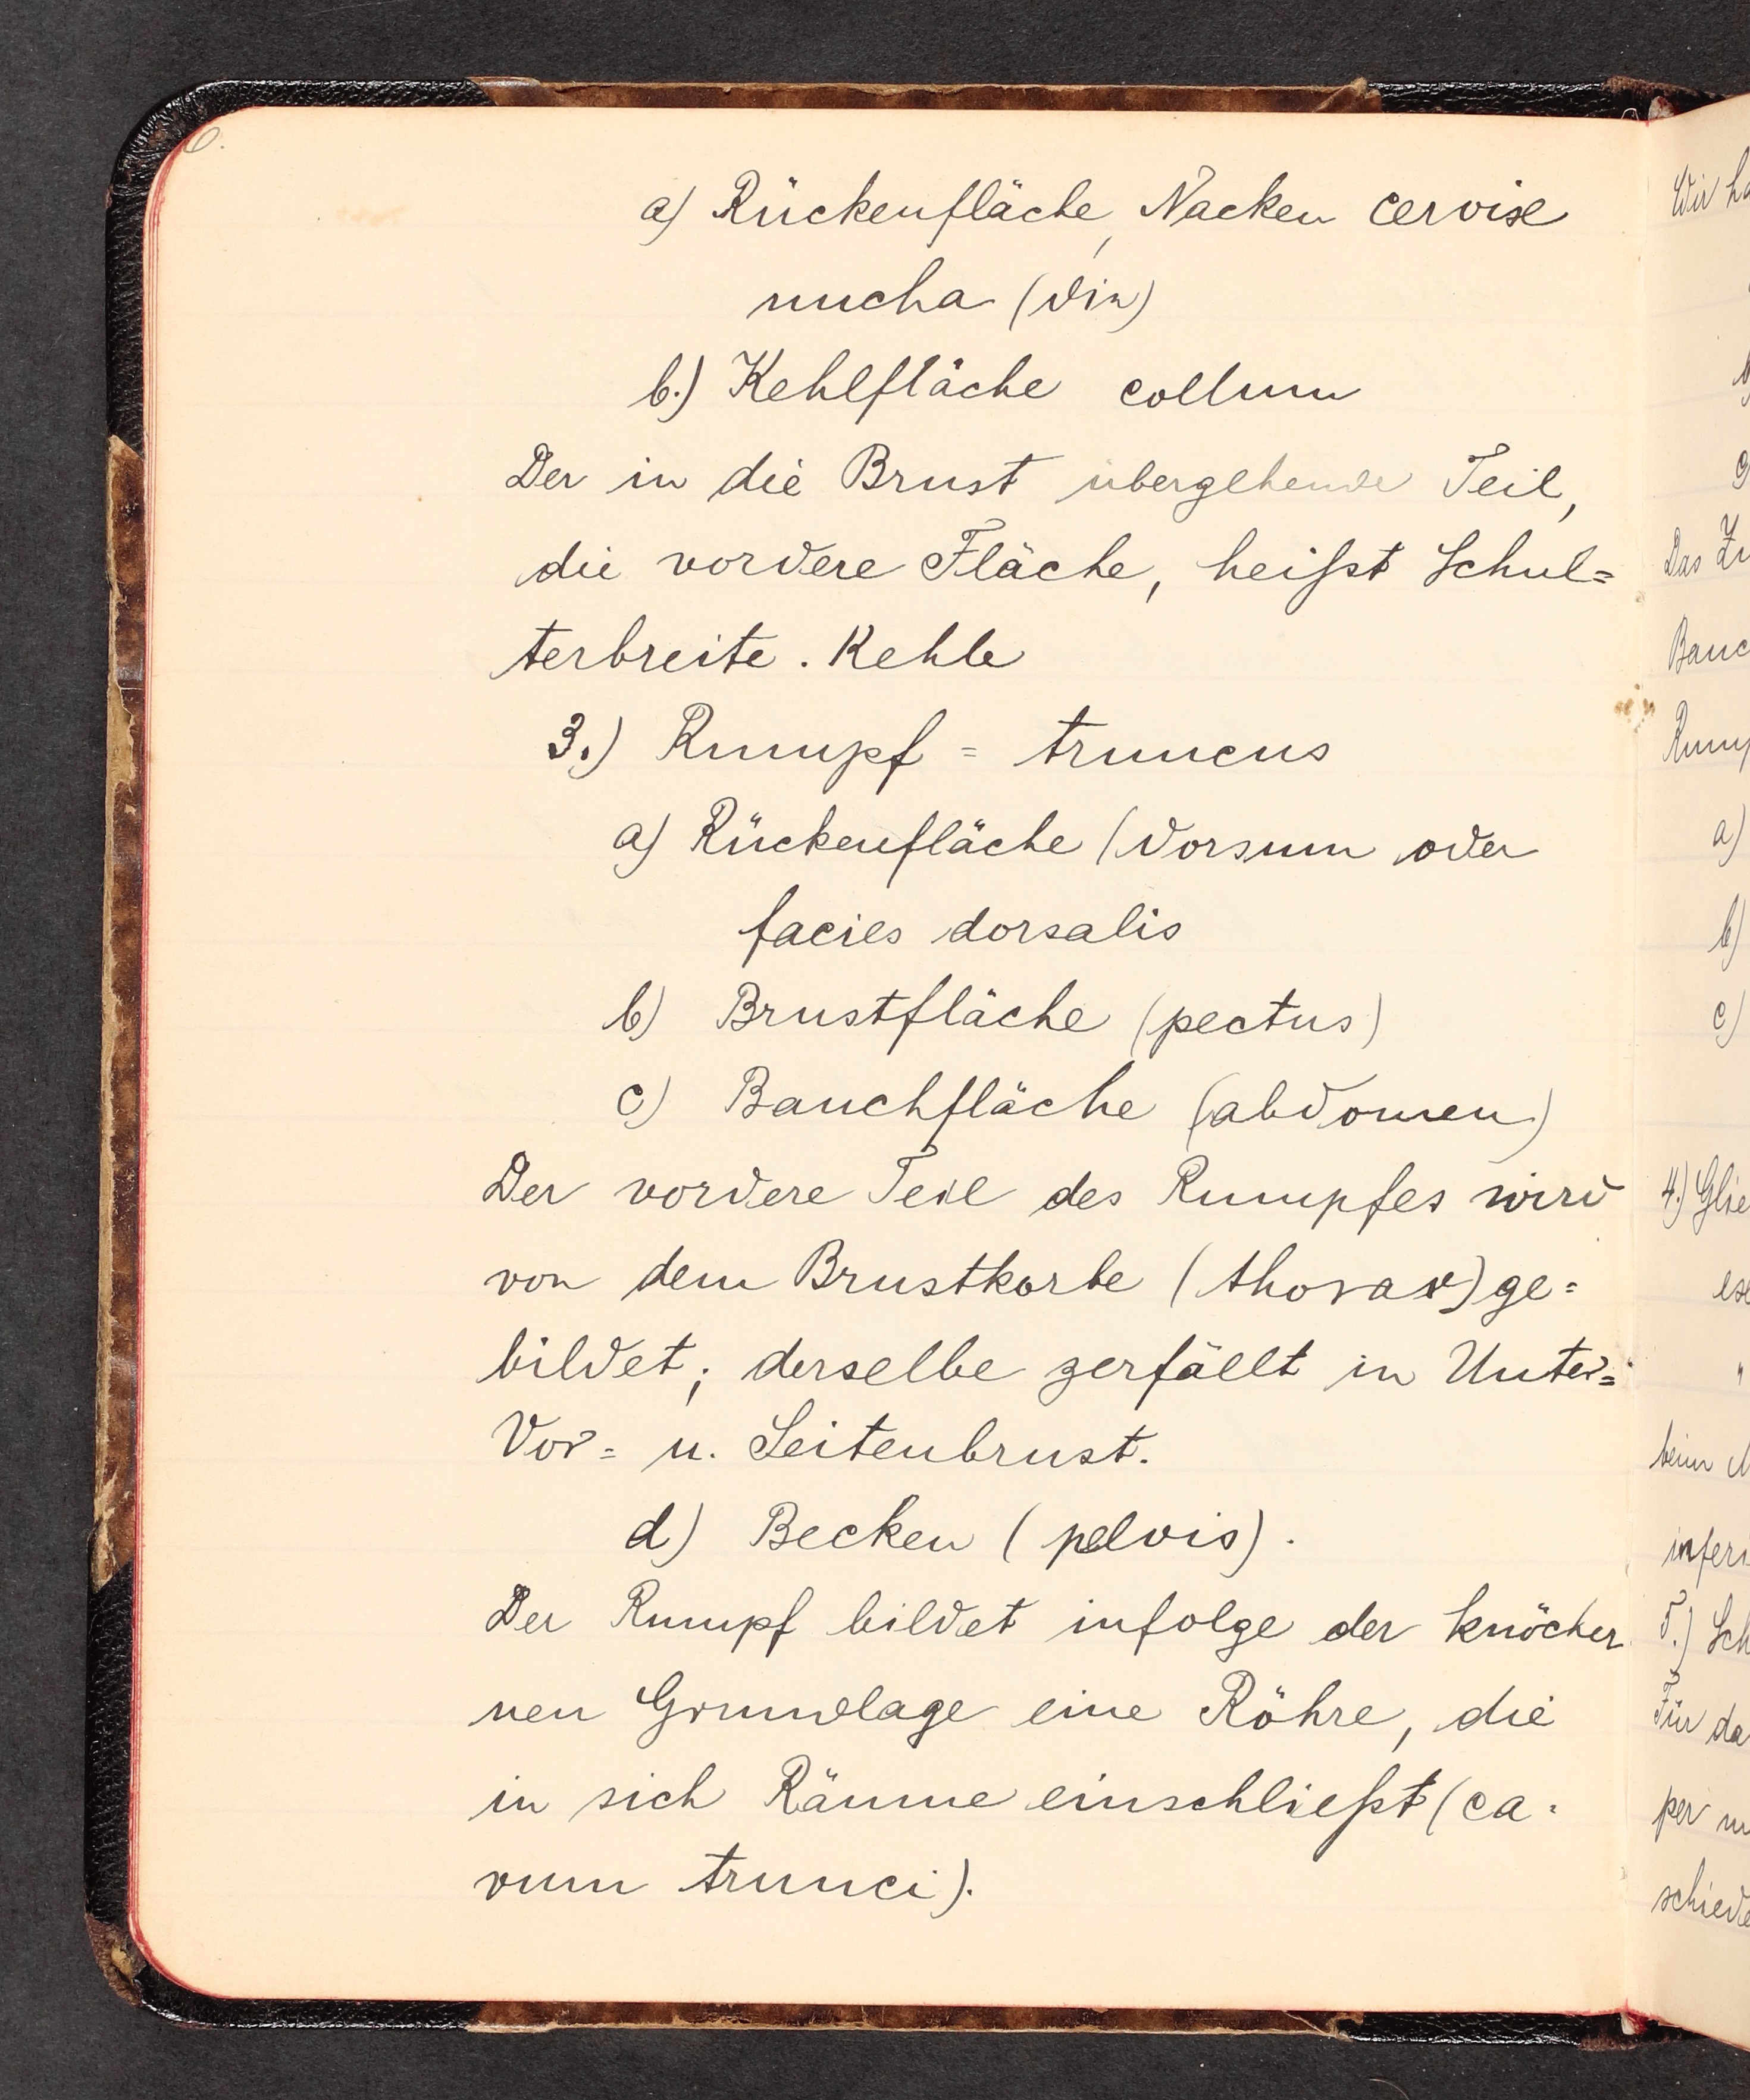 6.
a) Rückenfläche, Nacken cervix
nucha (vin)
b.) Kehlfläche collum
Der in die Brust übergehende Teil,
die vordere Fläche, heißt Schul=
terbreite. Kehle
3.) Rumpf = truncus
a) Rückenfläche (dorsum oder
facies dorsalis
b) Brustfläche (pectus)
c) Bauchfläche (abdomen)
Der vordere Teil des Rumpfes wird
von dem Brustkorbe (thorax) ge=
bildet; derselbe zerfällt in Unter=
Vor= u. Seitenbrust.
d) Becken (pelvis).
Der Rumpf bildet infolge der knöcher
nen Grundlage eine Röhre, die
in sich Räume einschließt (ca=
vum trunci).
Wir
Das
a)
b)
c)
4.)
beim
5.)
Für
per